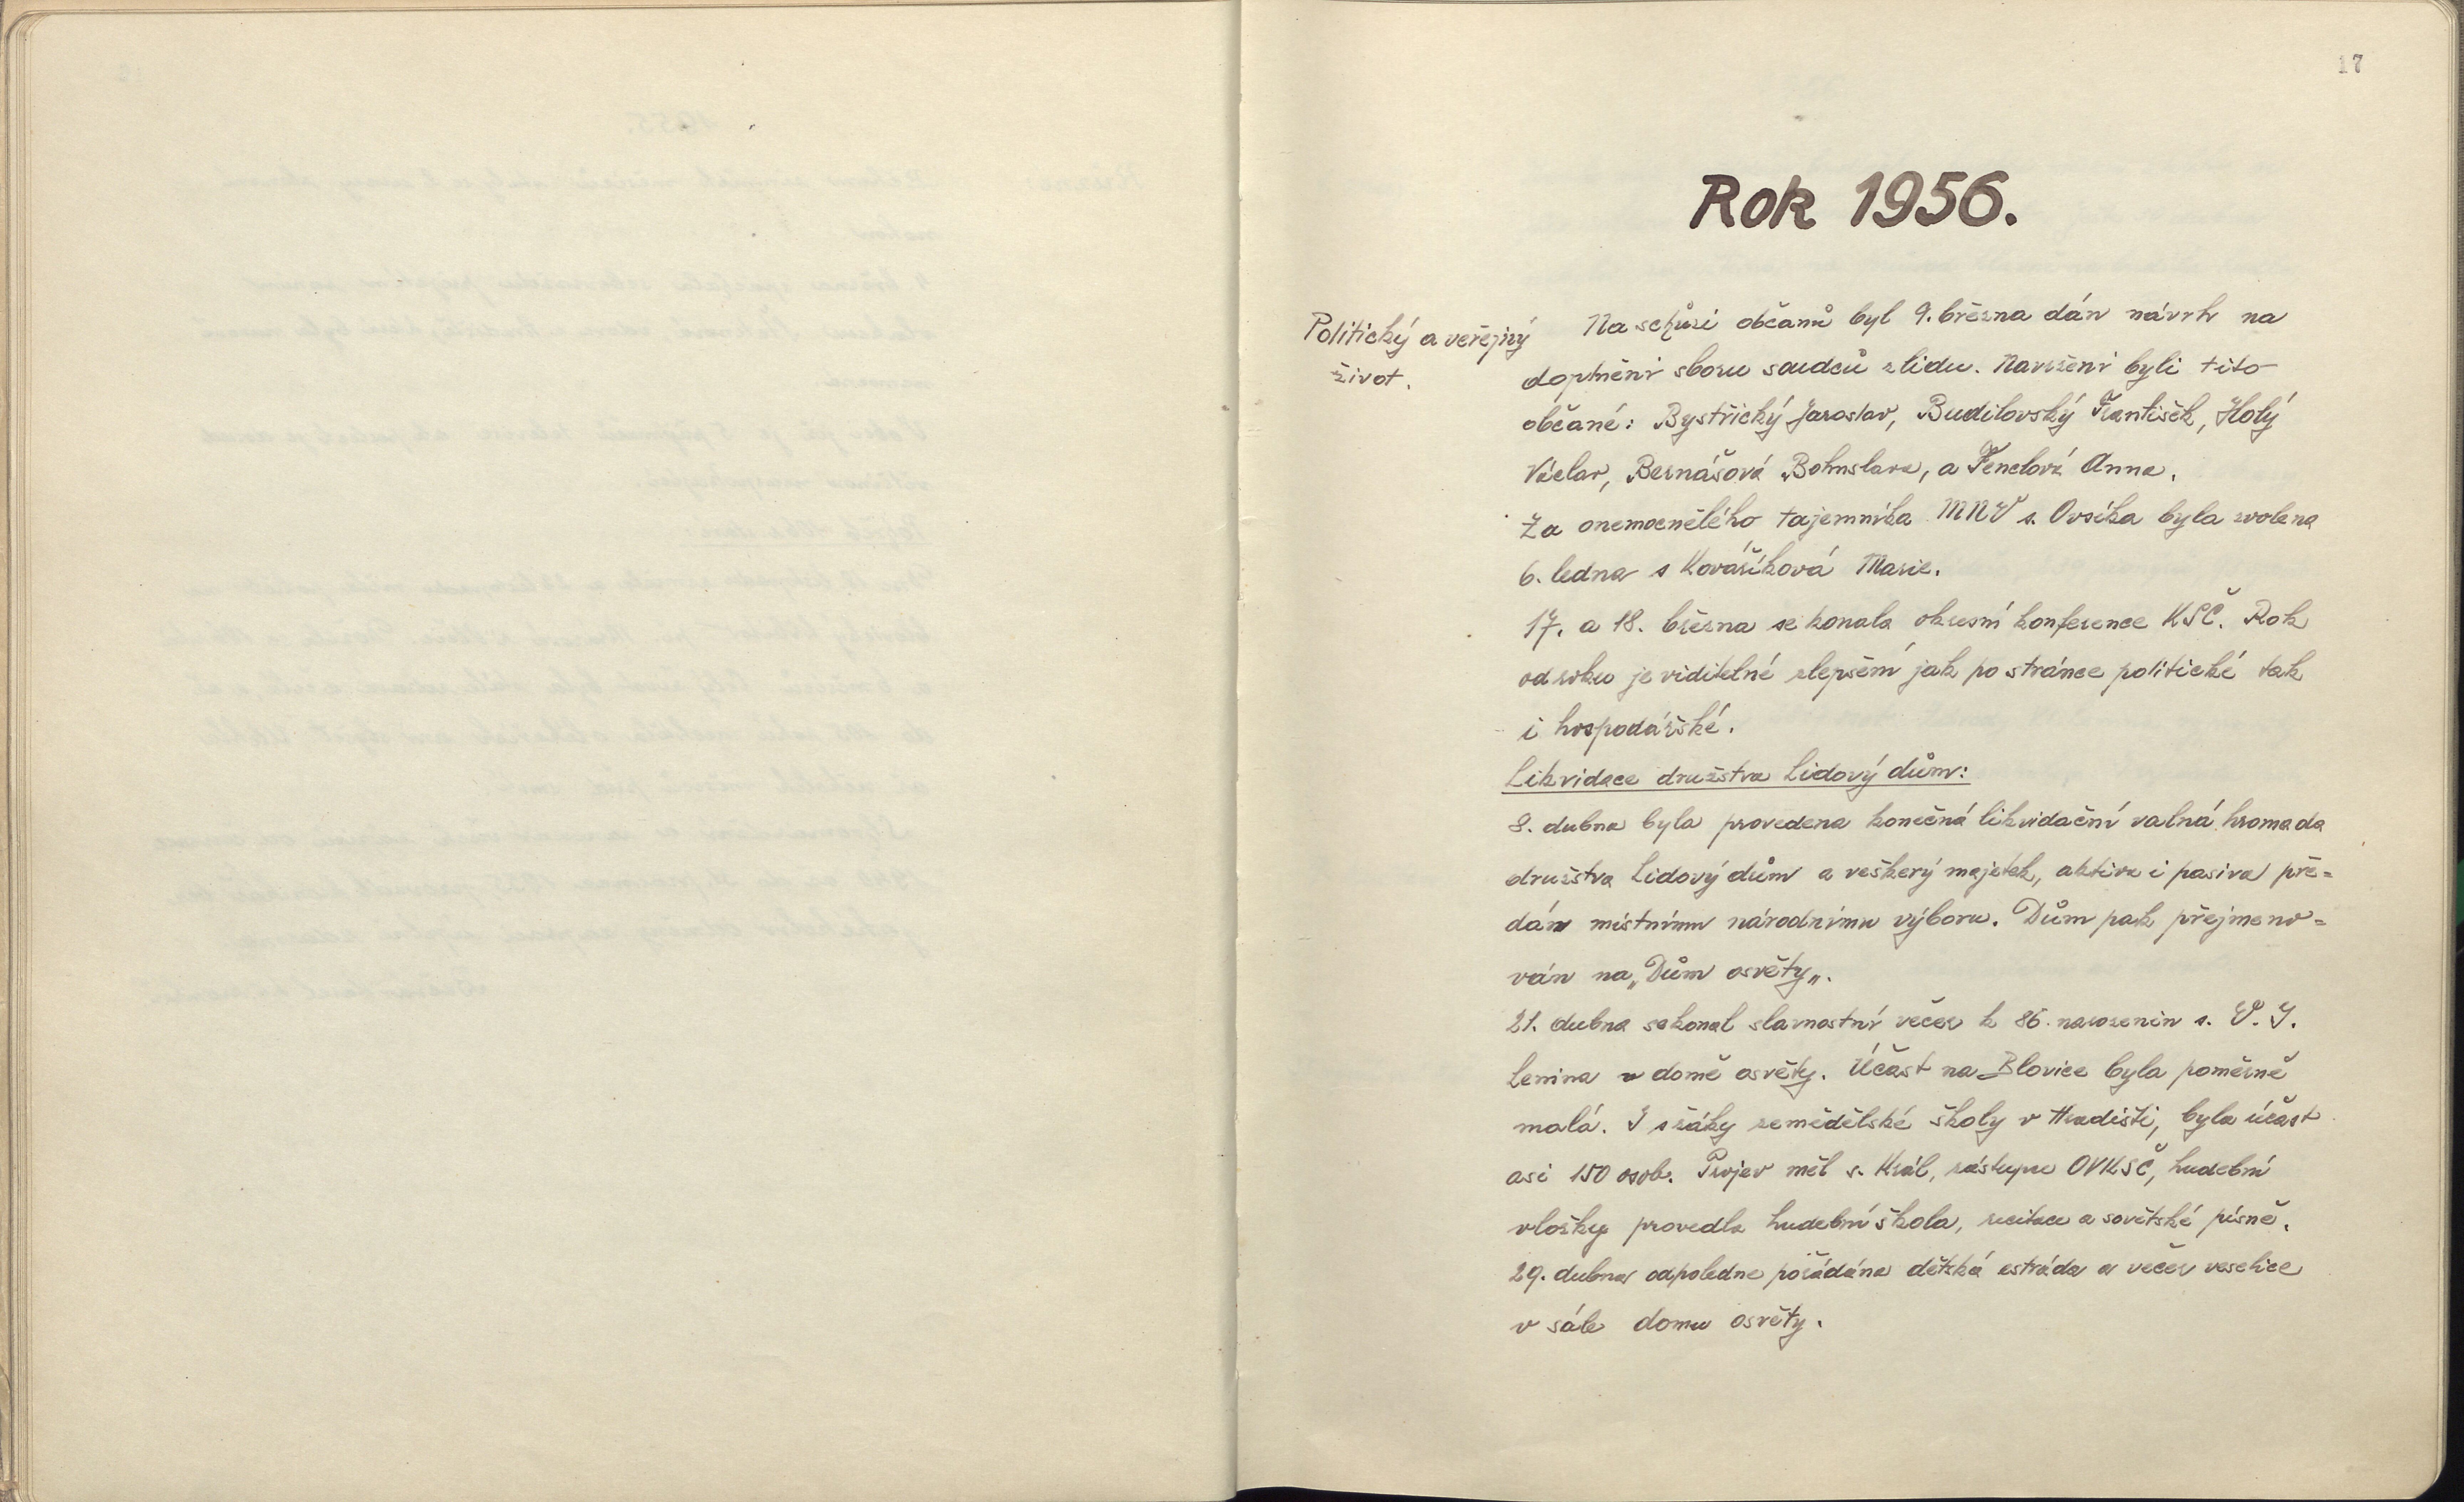 17
Rok 1956.
Politický a veřejný
život.
Na schůzi občanů byl 9. března dán návrh na
doplnění sboru soudců z lidu. Navrženi byli tito
občané: Bystřický Jaroslav, Budilovský František, Holý
Václav, Bernášová Bohuslava, a Fenclová Anna.
Za onemocnělého tajemníka MNV s. Ovsíka byla zvolena
6. ledna s Kovaříková Marie.
17. a 18. března se konala okresní konference KSČ. Rok
od roku je viditelné zlepšení jak po stránce politické tak
i hospodářské.
Likvidace družstva Lidový dům:
8. dubna byla provedena konečná likvidační valná hromada
družstva Lidový dům a veškerý majetek, aktiva i pasiva pře=
dán místnímu národnímu výboru. Dům pak přejmeno=
ván na „Dům osvěty„.
21. dubna se konal slavnostní večer k 86. narozenin s. V. I.
Lenina v domě osvěty. Účast na Blovice byla poměrně
malá. I s žáky zemědělské školy v Hradišti, byla účast
asi 150 osob. Projev měl s. Král, zástupce OVKSČ, hudební
vložky provedla hudební škola, recitace a sovětské písně.
29. dubna odpoledne pořádána dětská estráda a večer veselice
v sále domu osvěty.